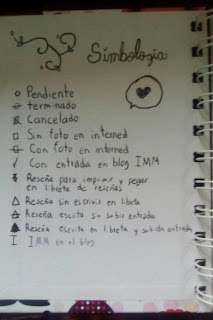 Simbología
○ Pendiente
⊖ terminado
⊗ Cancelado
□ Sin foto en interned
Con foto en interned
√ Con entrada en blog IMM
Reseña para imprimir y pegar
en libreta de reseñas
△ Reseña sin escrivir en libreta
Reseña escrita sin subir entrada
▲ Reseña escrita en libreta y subida entrada
I IMM en el blog